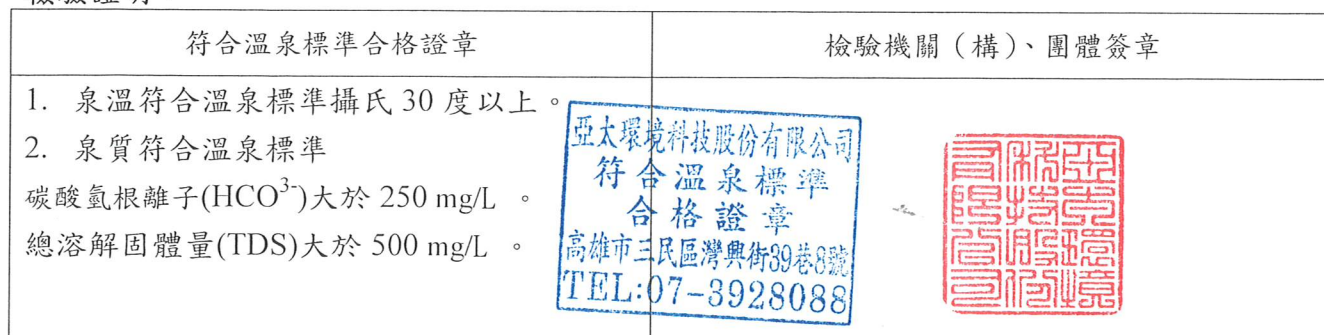 檢驗證明
符合溫泉標準合格證章
檢驗機關（構）、團體簽章
1. 泉溫符合溫泉標準攝氏 30 度以上。
2. 泉質符合溫泉標準
碳酸氫根離子(HCO³⁻)大於 250 mg/L 。
總溶解固體量(TDS)大於 500 mg/L 。
亞太環境科技股份有限公司
符合溫泉標準
合格證章
高雄市三民區灣興街39巷8號
TEL:07-3928088
亞太環境
科技股份
有限公司